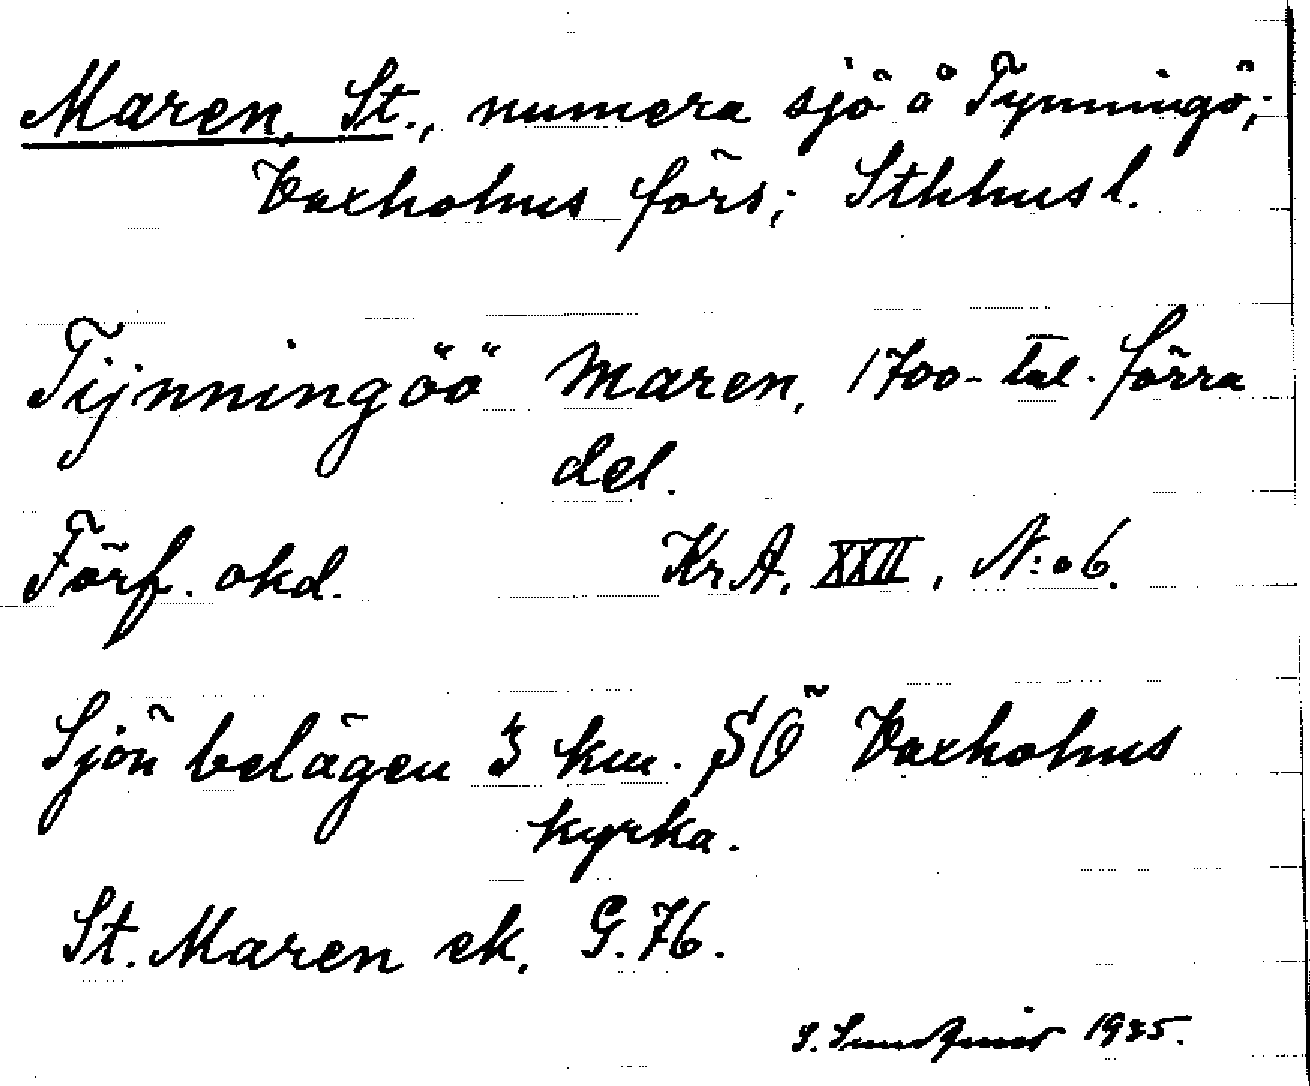 Maren, St., numera sjö å Tynningö;
Vaxholms förs; Sthlms l.
Tijnningöö Maren, 1700-tal. förra
del.
Förf. okd. Kr.A. XXII, N:o 6.
Sjön belägen 3 km. SÖ Vaxholms
kyrka.
St. Maren ek. G. 76.
S. Sundqvist 1935.